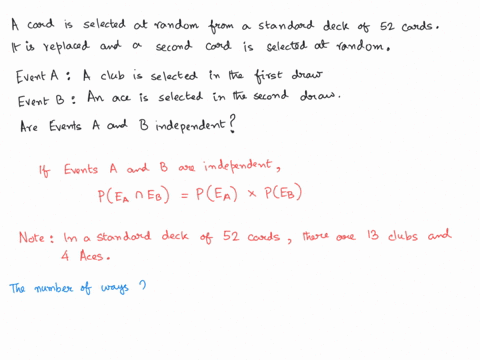 A card is selected at random from a standard deck of 52 cards.
It is replaced and a second card is selected at random.
Event A: A club is selected in the first draw
Event B: An ace is selected in the second draw.
Are Events A and B independent?
If Events A and B are independent,
P(E_A ∩ E_B) = P(E_A) × P(E_B)
Note: In a standard deck of 52 cards, there are 13 clubs and
4 Aces.
The number of ways